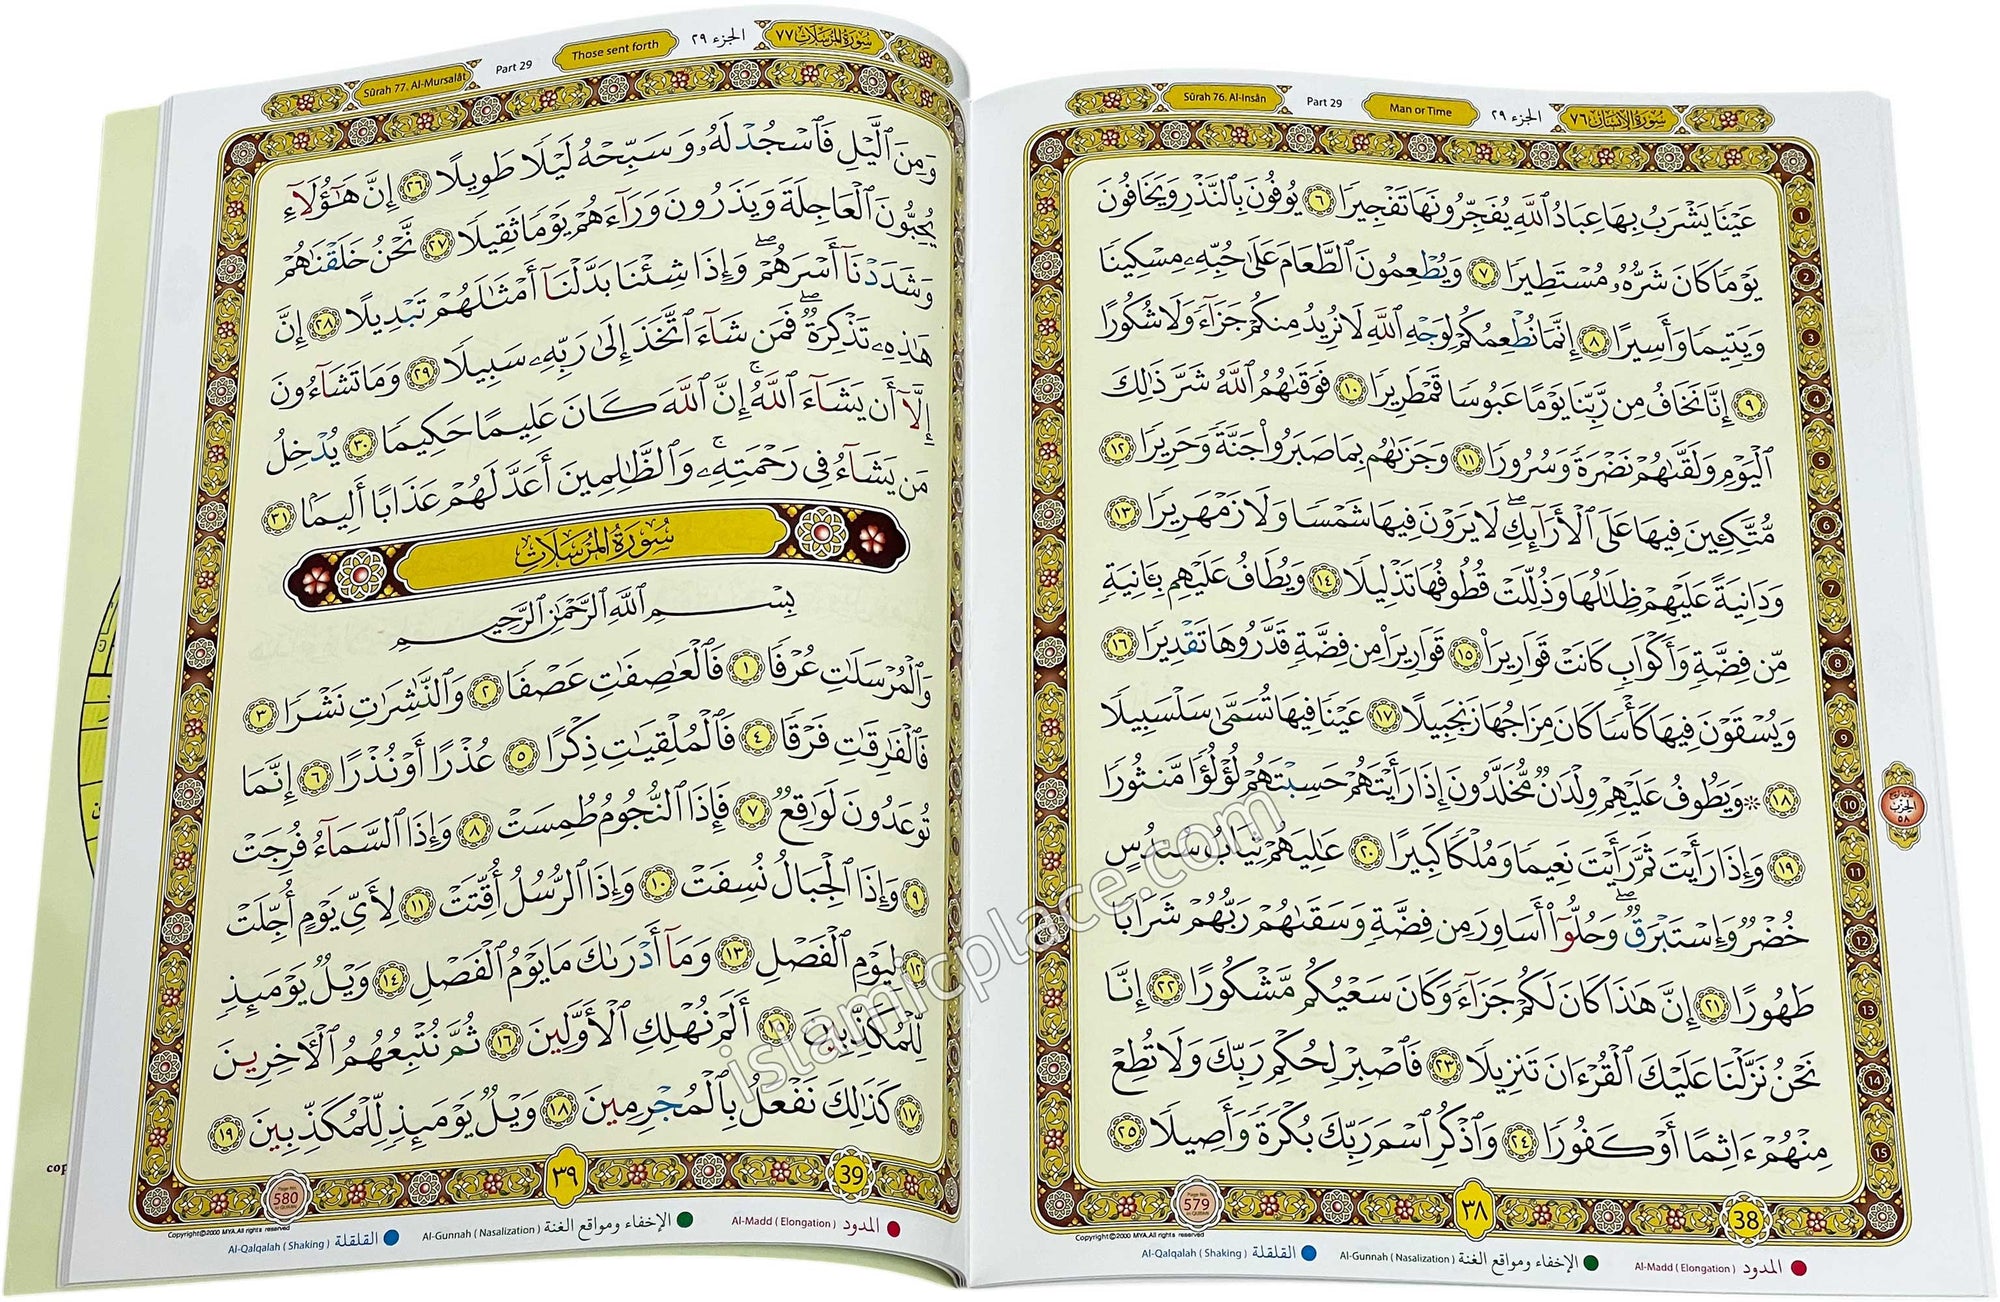 Sūrah 76. Al-Insān
Part 29
Man or Time
الجزء ٢٩
سورة الإنسان ٧٦
عَيْنًا يَشْرَبُ بِهَا عِبَادُ ٱللَّهِ يُفَجِّرُونَهَا تَفْجِيرًا ٦ يُوفُونَ بِٱلنَّذْرِ وَيَخَافُونَ
يَوْمًا كَانَ شَرُّهُۥ مُسْتَطِيرًا ٧ وَيُطْعِمُونَ ٱلطَّعَامَ عَلَىٰ حُبِّهِۦ مِسْكِينًا
وَيَتِيمًا وَأَسِيرًا ٨ إِنَّمَا نُطْعِمُكُمْ لِوَجْهِ ٱللَّهِ لَا نُرِيدُ مِنكُمْ جَزَآءً وَلَا شُكُورًا
٩ إِنَّا نَخَافُ مِن رَّبِّنَا يَوْمًا عَبُوسًا قَمْطَرِيرًا ١٠ فَوَقَىٰهُمُ ٱللَّهُ شَرَّ ذَٰلِكَ
ٱلْيَوْمِ وَلَقَّىٰهُمْ نَضْرَةً وَسُرُورًا ١١ وَجَزَىٰهُم بِمَا صَبَرُوا۟ جَنَّةً وَحَرِيرًا ١٢
مُّتَّكِـِٔينَ فِيهَا عَلَى ٱلْأَرَآئِكِ ۖ لَا يَرَوْنَ فِيهَا شَمْسًا وَلَا زَمْهَرِيرًا ١٣
وَدَانِيَةً عَلَيْهِمْ ظِلَٰلُهَا وَذُلِّلَتْ قُطُوفُهَا تَذْلِيلًا ١٤ وَيُطَافُ عَلَيْهِم بِـَٔانِيَةٍ
مِّن فِضَّةٍ وَأَكْوَابٍ كَانَتْ قَوَارِيرَا۠ ١٥ قَوَارِيرَا۟ مِن فِضَّةٍ قَدَّرُوهَا تَقْدِيرًا ١٦
وَيُسْقَوْنَ فِيهَا كَأْسًا كَانَ مِزَاجُهَا زَنجَبِيلًا ١٧ عَيْنًا فِيهَا تُسَمَّىٰ سَلْسَبِيلًا
١٨ ۞ وَيَطُوفُ عَلَيْهِمْ وِلْدَٰنٌ مُّخَلَّدُونَ إِذَا رَأَيْتَهُمْ حَسِبْتَهُمْ لُؤْلُؤًا مَّنثُورًا
١٩ وَإِذَا رَأَيْتَ ثَمَّ رَأَيْتَ نَعِيمًا وَمُلْكًا كَبِيرًا ٢٠ عَٰلِيَهُمْ ثِيَابُ سُندُسٍ
خُضْرٌ وَإِسْتَبْرَقٌ ۖ وَحُلُّوٓا۟ أَسَاوِرَ مِن فِضَّةٍ وَسَقَىٰهُمْ رَبُّهُمْ شَرَابًا
طَهُورًا ٢١ إِنَّ هَٰذَا كَانَ لَكُمْ جَزَآءً وَكَانَ سَعْيُكُم مَّشْكُورًا ٢٢ إِنَّا
نَحْنُ نَزَّلْنَا عَلَيْكَ ٱلْقُرْءَانَ تَنزِيلًا ٢٣ فَٱصْبِرْ لِحُكْمِ رَبِّكَ وَلَا تُطِعْ
مِنْهُمْ ءَاثِمًا أَوْ كَفُورًا ٢٤ وَٱذْكُرِ ٱسْمَ رَبِّكَ بُكْرَةً وَأَصِيلًا ٢٥
1
2
3
4
5
6
7
8
9
10
11
12
13
14
15
الحزب
٥٨
Page No.
579
٣٨
38
Copyright©2000 MYA.All rights reserved
Al-Qalqalah ( Shaking ) القلقلة
Al-Gunnah ( Nasalization ) الإخفاء ومواقع الغنة
Al-Madd ( Elongation ) المدود
Sūrah 77. Al-Mursalāt
Part 29
Those sent forth
الجزء ٢٩
سورة المرسلات ٧٧
وَمِنَ ٱلَّيْلِ فَٱسْجُدْ لَهُۥ وَسَبِّحْهُ لَيْلًا طَوِيلًا ٢٦ إِنَّ هَٰٓؤُلَآءِ
يُحِبُّونَ ٱلْعَاجِلَةَ وَيَذَرُونَ وَرَآءَهُمْ يَوْمًا ثَقِيلًا ٢٧ نَّحْنُ خَلَقْنَٰهُمْ
وَشَدَدْنَآ أَسْرَهُمْ ۖ وَإِذَا شِئْنَا بَدَّلْنَآ أَمْثَٰلَهُمْ تَبْدِيلًا ٢٨ إِنَّ
هَٰذِهِۦ تَذْكِرَةٌ ۖ فَمَن شَآءَ ٱتَّخَذَ إِلَىٰ رَبِّهِۦ سَبِيلًا ٢٩ وَمَا تَشَآءُونَ
إِلَّآ أَن يَشَآءَ ٱللَّهُ ۚ إِنَّ ٱللَّهَ كَانَ عَلِيمًا حَكِيمًا ٣٠ يُدْخِلُ
مَن يَشَآءُ فِى رَحْمَتِهِۦ ۚ وَٱلظَّٰلِمِينَ أَعَدَّ لَهُمْ عَذَابًا أَلِيمًۢا ٣١
سُورَةُ المُرْسَلَاتِ
بِسْمِ ٱللَّهِ ٱلرَّحْمَٰنِ ٱلرَّحِيمِ
وَٱلْمُرْسَلَٰتِ عُرْفًا ١ فَٱلْعَٰصِفَٰتِ عَصْفًا ٢ وَٱلنَّٰشِرَٰتِ نَشْرًا ٣
فَٱلْفَٰرِقَٰتِ فَرْقًا ٤ فَٱلْمُلْقِيَٰتِ ذِكْرًا ٥ عُذْرًا أَوْ نُذْرًا ٦ إِنَّمَا
تُوعَدُونَ لَوَٰقِعٌ ٧ فَإِذَا ٱلنُّجُومُ طُمِسَتْ ٨ وَإِذَا ٱلسَّمَآءُ فُرِجَتْ
٩ وَإِذَا ٱلْجِبَالُ نُسِفَتْ ١٠ وَإِذَا ٱلرُّسُلُ أُقِّتَتْ ١١ لِأَىِّ يَوْمٍ أُجِّلَتْ
١٢ لِيَوْمِ ٱلْفَصْلِ ١٣ وَمَآ أَدْرَىٰكَ مَا يَوْمُ ٱلْفَصْلِ ١٤ وَيْلٌ يَوْمَئِذٍ
لِّلْمُكَذِّبِينَ ١٥ أَلَمْ نُهْلِكِ ٱلْأَوَّلِينَ ١٦ ثُمَّ نُتْبِعُهُمُ ٱلْـَٔاخِرِينَ
١٧ كَذَٰلِكَ نَفْعَلُ بِٱلْمُجْرِمِينَ ١٨ وَيْلٌ يَوْمَئِذٍ لِّلْمُكَذِّبِينَ ١٩
Page No.
580
٣٩
39
Copyright©2000 MYA.All rights reserved
Al-Qalqalah ( Shaking ) القلقلة
Al-Gunnah ( Nasalization ) الإخفاء ومواقع الغنة
Al-Madd ( Elongation ) المدود
islamicplace.com
cop